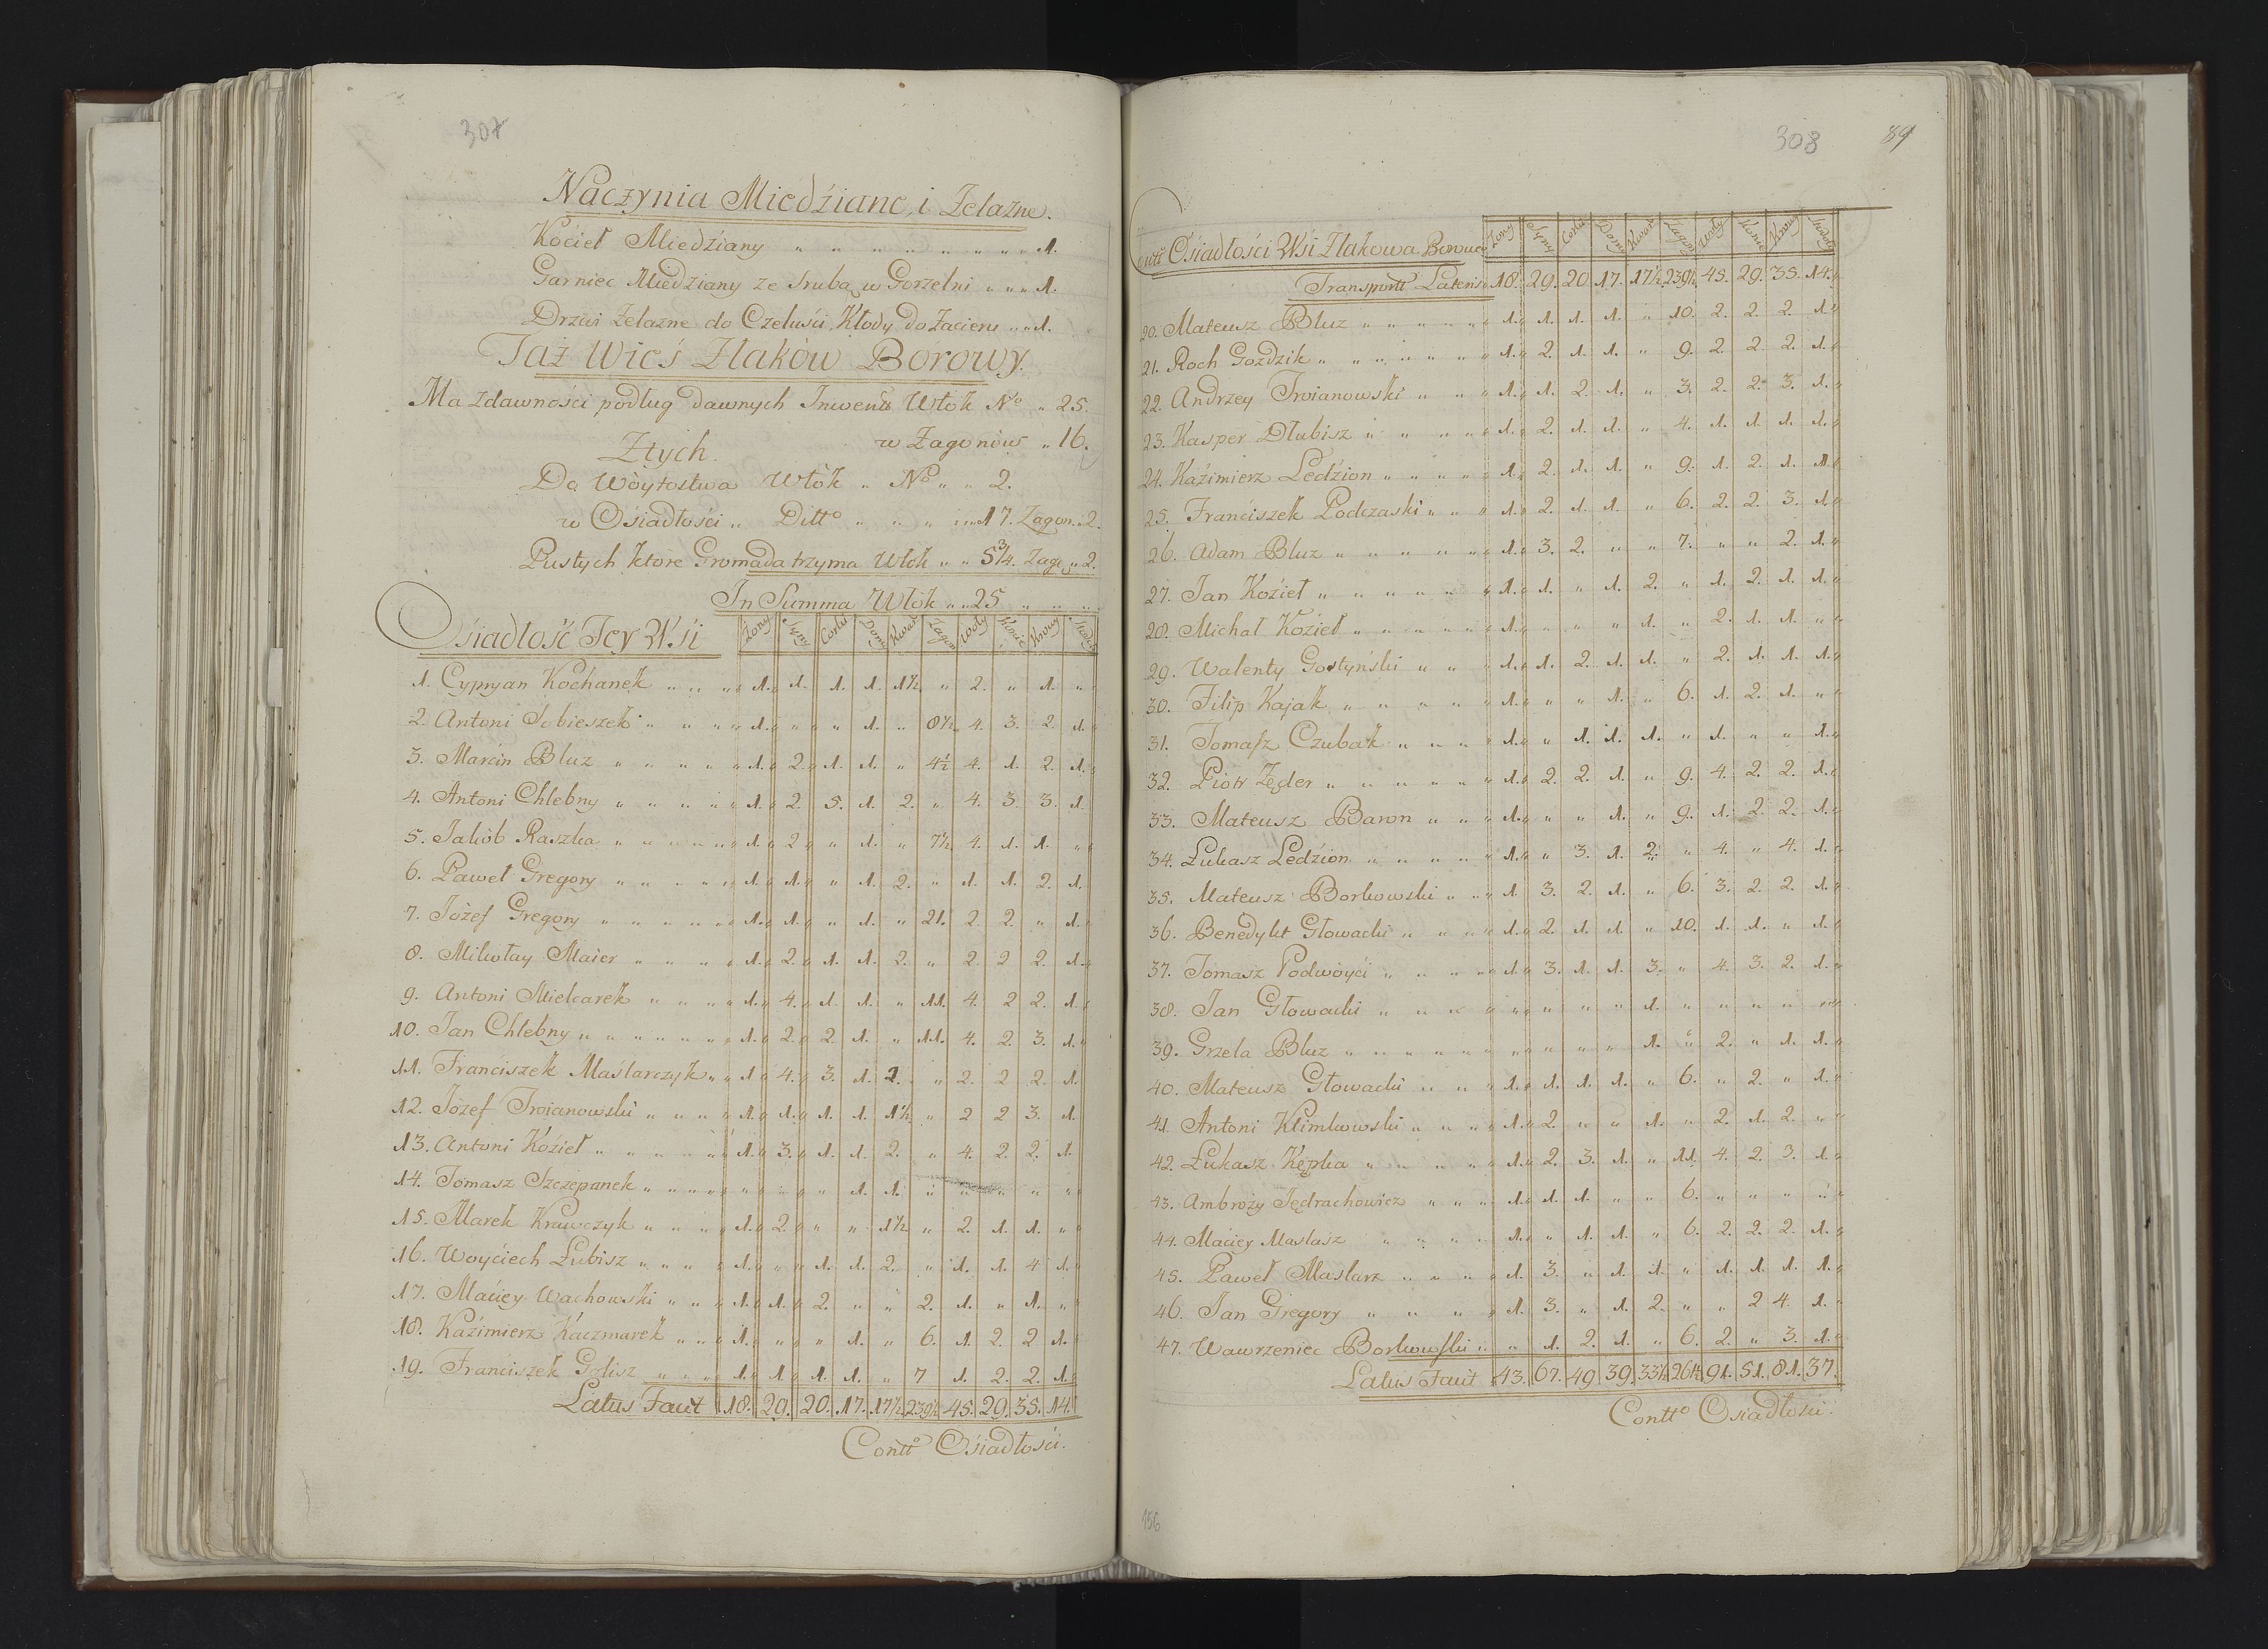 307
Naczynia Miedziane, i Żelazne.
Kocieł Miedziany „ „ „ „ „ „ „ 1.
Garniec Miedziany ze Srubą w Gorzelni „ „ „ 1.
Drzwi Żelazne do Czeluści, Kłody do Zacieru „ „ 1.
Taż Wieś Złaków Borowy.
Ma zdawności podług dawnych Inwent: Włok No „ 25.
w Zagonów „ 16.
Ztych.
Do Wóytostwa Włók „ No „ „ 2.
w Osiadłości „ Ditto „ „ „ 17. Zagon. „ 2.
Pustych ktore Gromada trzyma Włok „ „ 5 3/4. Zago „ 2.
In Summa Włok „ „ 25 „ „ „
Osiadłość Tey Wsi Żony Syny Corki Domy Kwar Zagon Woły Konie Krowy Stodoły
1. Cypryan Kochanek „ „ „ 1. 1. 1. 1. 1½ „ 2. „ 1. „
2. Antoni Sobieszek „ „ „ 1. „ „ 1. „ 8½ 4. 3. 2. 1.
3. Marcin Bluz „ „ „ 1. 2. 1. 1. „ 4½ 4. 1. 2. 1.
4. Antoni Chlebny „ „ „ 1. 2. 5. 1. 2. „ 4. 3. 3. 1.
5. Jakób Raszka „ „ „ 1. 2 „ 1. „ 7½ 4. 1. 1. „
6. Paweł Gregory „ „ „ 1. 1. „ 1. 2. „ 1. 1. 2. 1.
7. Józef Gregory „ „ „ 1. 1. „ 1. „ 21. 2. 2. „ 1.
8. Mikołay Maier „ „ „ 1. 2. 1. 1. 2. „ 2. 2 2. 1.
9. Antoni Mielcarek „ „ „ 1. 4. 1. 1. „ 11. 4. 2 2. 1.
10. Jan Chlebny „ „ „ 1. 2. 2. 1. „ 11. 4. 2. 3. 1.
11. Franciszek Maślarczyk „ „ 1. 4. 3. 1. 2. „ 2. 2 2. 1.
12. Józef Troianowski „ „ „ 1. 1. 1. 1. 1½ „ 2 2 3. 1.
13. Antoni Kozieł „ „ „ 1. 3. 1. 1. 2. „ 4. 2. 2. 1.
14. Tomasz Szczepanek „ „ „ „ „ „ 1. 1. „ „ „ „ „
15. Marek Krawczyk „ „ „ 1. 2. „ „ 1½ „ 2. 1. 1. „
16. Woyciech Łubisz „ „ „ 1. „ 1. 1. 2. „ 1. 1. 4 1.
17. Maciey Wachowski „ „ „ 1. 1. 2. „ „ 2. 1. „ 1. „
18. Kazimierz Kaczmarek „ „ 1. „ „ 1. „ 6. 1. 2. 2 1.
19. Franciszek Golisz „ „ „ 1. 1. 1. 1. „ 7 1. 2. 2. 1.
Latus Facit 18. 29. 20. 17. 17½ 239½ 45. 29. 35. 14.
Contto Osiadłości.
308 89
Contto Osiadłości Wsi Złakowa Borowe Żony Syny Corki Domy Kwart Zagon Woły Konie Krowy Stodoły
Transportt Lateris 18. 29. 20. 17. 17½ 239½ 45. 29. 35. 14.
20. Mateusz Bluz „ „ „ 1. 1. 1. 1. „ 10. 2. 2. 2. 1.
21. Roch Gozdzik „ „ „ 1. 2. 1. 1. „ 9. 2. 2. 2. 1.
22. Andrzey Troianowski „ „ 1. 1. 2. 1. „ 3. 2. 2. 3. 1.
23. Kasper Dłubisz „ „ „ 1. 2. 1. 1. „ 4. 1. 1. 1. 1.
24. Kaźimierz Ledzion „ „ „ 1. 2. 1. 1. „ 9. 1. 2. 1. 1.
25. Franciszek Podczaski „ „ 1. 2. 1. 1. „ 6. 2. 2. 3. 1.
26. Adam Bluz „ „ „ 1. 3. 2. „ „ 7. „ „ 2. 1.
27. Jan Kozieł „ „ „ 1. 1. „ 1. 2. „ 1. 2. 1. 1.
28. Michał Kozieł „ „ „ 1. „ „ „ 1. „ 2. 1. 1. „
29. Walenty Gostyński „ „ „ 1. 1. 2. 1. 1. „ 2. 1. 1. 1.
30. Filip Kajak „ „ „ 1. „ „ 1. „ 6. 1. 2. 1. „
31. Tomasz Czubak „ „ „ 1. „ 1. 1. 1. „ 1. „ „ 1.
32. Piotr Zęder „ „ „ 1. 2. 2. 1. „ 9. 4. 2. 2. 1.
33. Mateusz Baron „ „ „ 1. „ „ 1. „ 9. 1. 2. 2. 1.
34. Łukasz Ledzion „ „ „ 1. „ 3. 1. 2. „ 4. „ 4. 1.
35. Mateusz Borkowski „ „ „ 1. 3. 2. 1. „ 6. 3. 2. 2. 1.
36. Benedykt Głowacki „ „ „ 1. 2. 1. 1. „ 10. 1. 1. „ 1.
37. Tomasz Podwoyci „ „ „ 1. 3. 1. 1. 3. „ 4. 3. 2. 1.
38. Jan Głowacki „ „ „ „ „ „ „ 1. „ „ „ „ „
39. Grzela Bluz „ „ „ „ „ „ „ 1. „ 2. „ 1. 1.
40. Mateusz Głowacki „ „ „ 1. 1. 1. 1. „ 6. „ 2. „ 1.
41. Antoni Klimkowski „ „ „ 1. 2. „ „ 1. „ 2. 1. 2. „
42. Łukasz Kępka „ „ „ 1. 2. 3. 1. „ 11. 4. 2. 3. 1.
43. Ambroży Jędrachowicz „ „ 1. 1. 1. „ „ 6. „ „ „ „
44. Maciey Maslasz „ „ „ 1. „ 1. 1. „ 6. 2. 2. 2. 1.
45. Paweł Maslarz „ „ „ 1. 3. „ 1. 1. „ 1. 1. 1. 1.
46. Jan Gregory „ „ „ 1. 3. „ 1. 2. „ „ 2 4. 1.
47. Wawrzeniec Borkowski „ „ 1. 2. 1. „ 6. 2. „ 3. 1.
Latus Facit 43. 67. 49 39. 33½ 26½ 91. 51. 81. 37.
Contto Osiadłości.
156